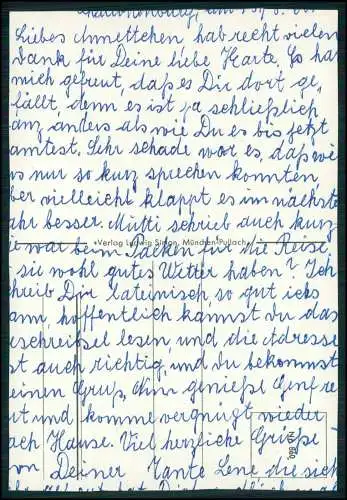 Liebes Annettchen hab recht vielen
Dank für Deine liebe Karte. Es ha
mich gefreut, daß es Dir dort ge,
fällt, denn es ist ja schließlich
anz anders als wie Du es bis jetzt
amtest. Sehr schade war es, daß wi
s nur so kurz sprechen konnten
ber vielleicht klappt es im nächste
ahr besser. Mutti schrieb auch kurz
ie war beim Packen für die Reise
•Verlag Ludwig Simon, München-Pullach
sie wohl gutes Wetter haben? Ich
chreib Dir lateinisch so gut ichs
ann, hoffentlich kannst du das
eschreibsel lesen, und die Adresse
st auch richtig, und du bekommst
einen Gruß, nun genieße Genf re
t und komme vergnügt wieder
ach Hause. Viel herzliche Grüße
on Deiner Tante Lene die sich